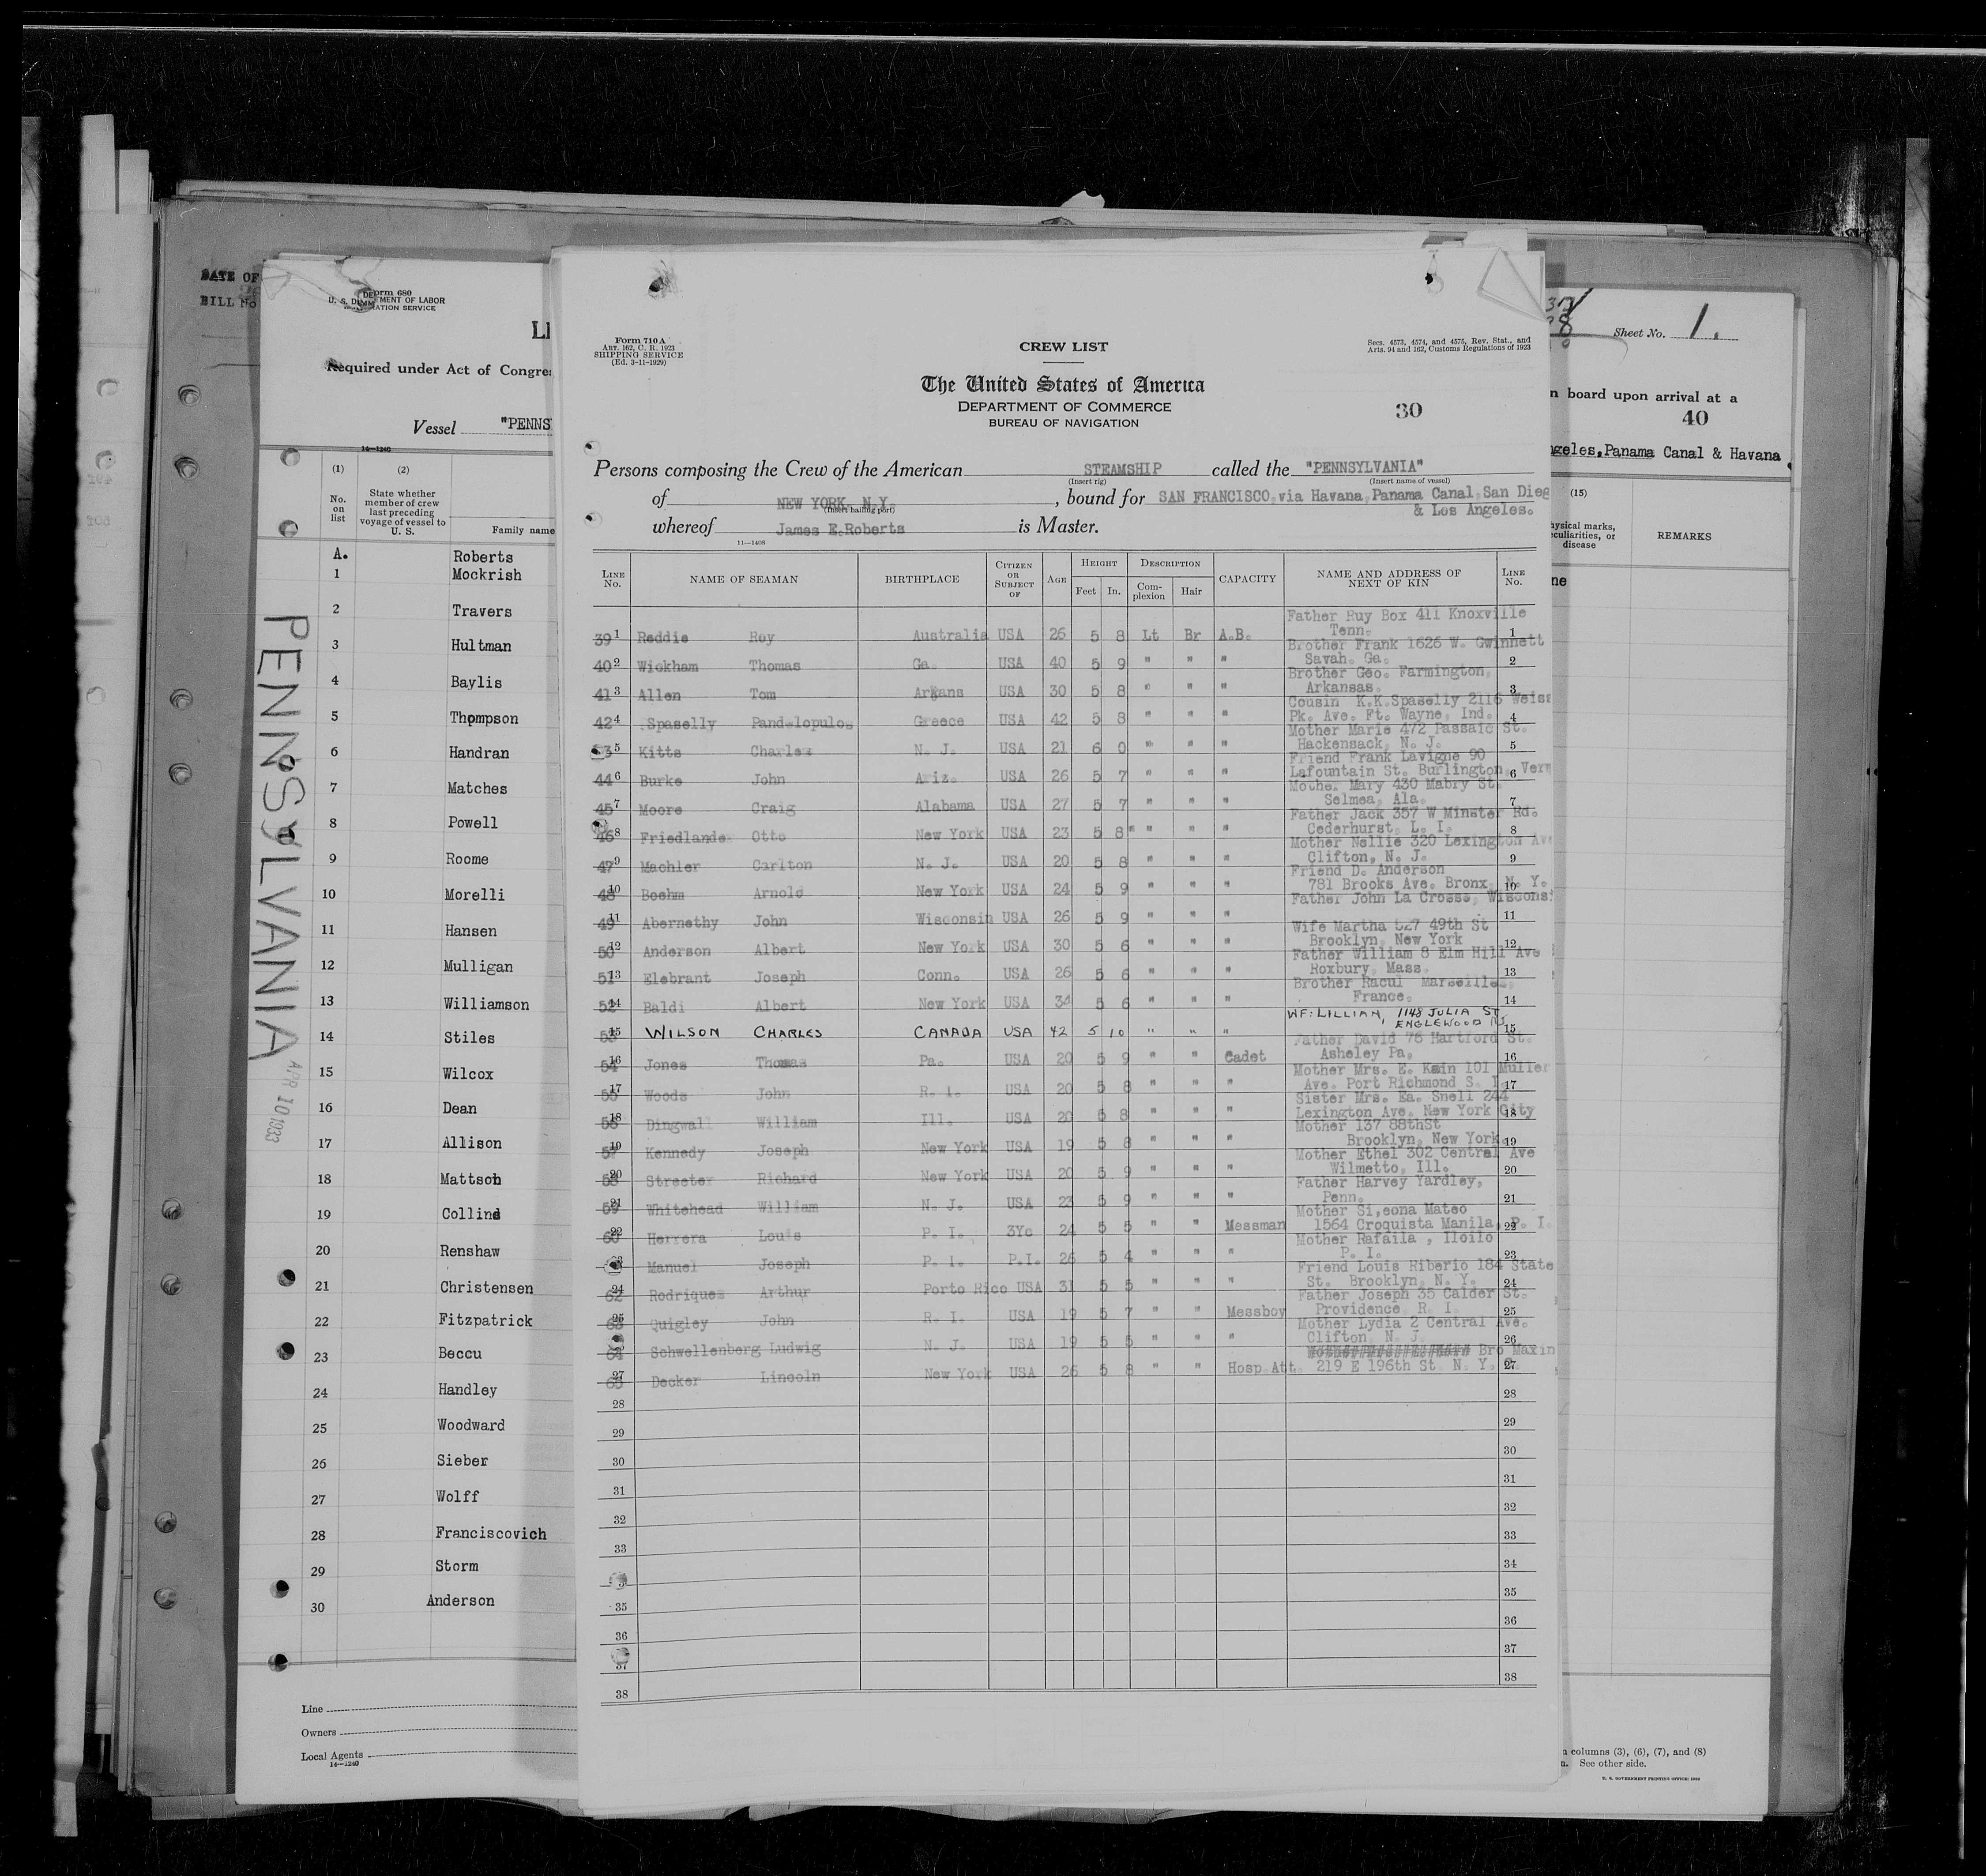 DATE OF
BILL No
Form 680
U. S. DEPARTMENT OF LABOR
IMMIGRATION SERVICE
LI
Required under Act of Congres
Vessel "PENNS
14—1240
(1) (2)
No. on list
State whether member of crew last preceding voyage of vessel to U. S.
Family name
A. Roberts
1 Mockrish
2 Travers
3 Hultman
4 Baylis
5 Thompson
6 Handran
7 Matches
8 Powell
9 Roome
10 Morelli
11 Hansen
12 Mulligan
13 Williamson
14 Stiles
15 Wilcox
16 Dean
17 Allison
18 Mattson
19 Collins
20 Renshaw
21 Christensen
22 Fitzpatrick
23 Beccu
24 Handley
25 Woodward
26 Sieber
27 Wolff
28 Franciscovich
29 Storm
30 Anderson
Line
Owners
Local Agents
14—1240
PENNSYLVANIA
APR 10 1933
Form 710 A
Art. 162, C. R. 1923
SHIPPING SERVICE
(Ed. 3-11-1929)
CREW LIST
Secs. 4573, 4574, and 4575, Rev. Stat., and
Arts. 94 and 162, Customs Regulations of 1923
The United States of America
DEPARTMENT OF COMMERCE
BUREAU OF NAVIGATION
30
Persons composing the Crew of the American STEAMSHIP called the "PENNSYLVANIA"
(Insert rig) (Insert name of vessel)
of NEW YORK, N.Y. , bound for SAN FRANCISCO, via Havana, Panama Canal, San Dieg
(Insert hailing port)
& Los Angeles.
whereof James E. Roberts is Master.
11—1408
LINE No. NAME OF SEAMAN BIRTHPLACE CITIZEN OR SUBJECT OF AGE HEIGHT Feet In. DESCRIPTION Complexion Hair CAPACITY NAME AND ADDRESS OF NEXT OF KIN LINE No.
Father Ruy Box 411 Knoxville
39 1 Reddie Roy Australia USA 26 5 8 Lt Br A.B. Tenn. 1
Brother Frank 1626 W. Gwinnett
40 2 Wickham Thomas Ga. USA 40 5 9 " " " Savah. Ga. 2
Brother Geo. Farmington,
41 3 Allen Tom Arkans USA 30 5 8 " " " Arkansas. 3
Cousin K.K.Spaselly 2116 Weiss
42 4 Spaselly Pandelopulos Greece USA 42 5 8 " " " Pk. Ave. Ft. Wayne, Ind. 4
Mother Marie 472 Passaic St.
5 Kitts Charles N. J. USA 21 6 0 " " " Hackensack, N. J. 5
Friend Frank Lavigne 90
44 6 Burke John Ariz. USA 26 5 7 " " " Lafountain St. Burlington, Verm 6
Mother Mary 430 Mabry St.
45 7 Moore Craig Alabama USA 27 5 7 " " " Selmea, Ala. 7
Father Jack 357 W Minster Rd.
46 8 Friedlander Otto New York USA 23 5 8 " " " Cederhurst, L. I. 8
Mother Nellie 320 Lexington Ave
47 9 Machler Carlton N. J. USA 20 5 8 " " " Clifton, N. J. 9
Friend D. Anderson
48 10 Boehm Arnold New York USA 24 5 9 " " " 781 Brooks Ave. Bronx, N. Y. 10
Father John La Crosse, Wisconsi
49 11 Abernethy John Wisconsin USA 26 5 9 " " " 11
Wife Martha 527 49th St
50 12 Anderson Albert New York USA 30 5 6 " " " Brooklyn, New York 12
Father William 8 Elm Hill Ave
51 13 Elebrant Joseph Conn. USA 26 5 6 " " " Roxbury, Mass. 13
Brother Racul Marseilles,
52 14 Baldi Albert New York USA 34 5 6 " " " France. 14
WF: LILLIAN, 1148 JULIA ST
53 15 WILSON CHARLES CANADA USA 42 5 10 " " " ENGLEWOOD NJ 15
Father David 76 Hartford St.
54 16 Jones Thomas Pa. USA 20 5 9 " " Cadet Asheley Pa, 16
Mother Mrs. E. Kain 101 Muller
55 17 Woods John R. I. USA 20 5 8 " " " Ave. Port Richmond S. I. 17
Sister Mrs. Ea. Snell 244
56 18 Dingwall William Ill. USA 20 5 8 " " " Lexington Ave. New York City 18
Mother 137 88thSt
57 19 Kennedy Joseph New York USA 19 5 8 " " " Brooklyn, New York. 19
Mother Ethel 302 Central Ave
58 20 Streeter Richard New York USA 20 5 9 " " " Wilmetto, Ill. 20
Father Harvey Yardley,
59 21 Whitehead William N. J. USA 23 5 9 " " " Penn. 21
Mother Si,eona Mateo
60 22 Herrera Louis P. I. 3Yc 24 5 5 " " Messman 1564 Croquista Manila, P. I. 22
Mother Rafaila , Iloilo
Manuel Joseph P. I. P.I. 26 5 4 " " " P. I. 23
Friend Louis Riberio 184 State
62 24 Rodriques Arthur Porto Rico USA 31 5 5 " " " St. Brooklyn, N. Y. 24
Father Joseph 35 Calder St.
63 25 Quigley John R. I. USA 19 5 7 " " Messboy Providence R. I. 25
Mother Lydia 2 Central Ave.
64 Schwellenberg Ludwig N. J. USA 19 5 5 " " " Clifton, N. J. 26
Bro Maxin
65 27 Decker Lincoln New York USA 26 5 8 " " Hosp Att. 219 E 196th St. N. Y. 27
28 28
29 29
30 30
31 31
32 32
33 33
34
35 35
36 36
37 37
38 38
Sheet No. 1.
n board upon arrival at a
40
ngeles, Panama Canal & Havana
(15)
hysical marks,
eculiarities, or
disease
REMARKS
ne
n columns (3), (6), (7), and (8)
n. See other side.
U. S. GOVERNMENT PRINTING OFFICE